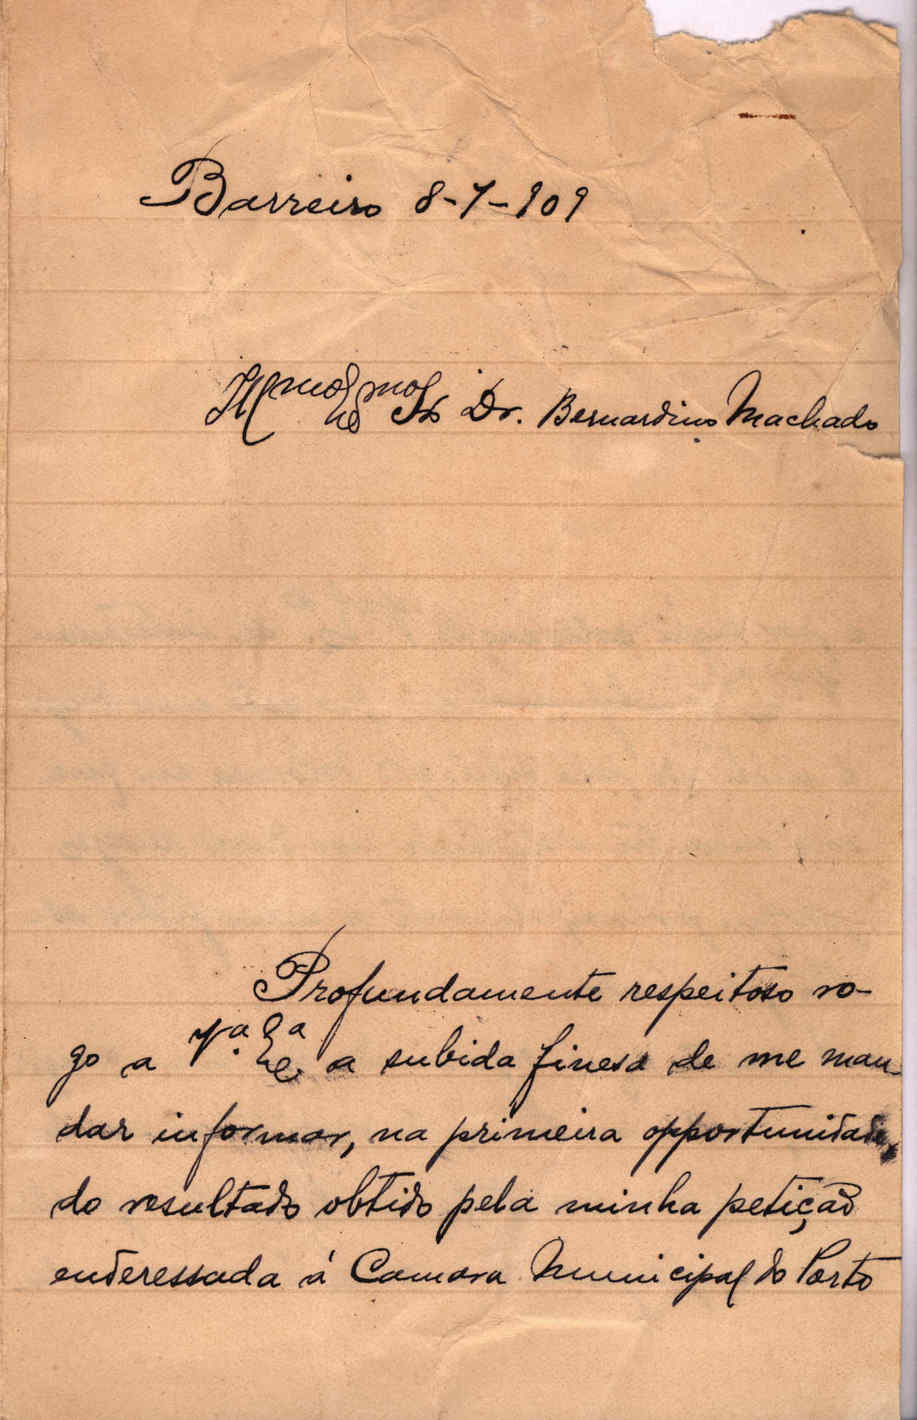 Barreiro 8-7-909
Illmo Exmo Sr Dr. Bernardino Machado
Profundamente respeitoso ro-
go a V.ª Ex.ª a subida finesa de me man-
dar informar, na primeira opportunidade,
do resultado obtido pela minha petição
enderessada á Camara Municipal do Porto